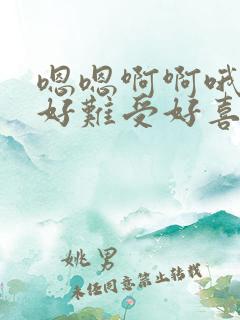 嗯嗯啊啊哦
好難受好喜
姚男
未任同意禁止转载